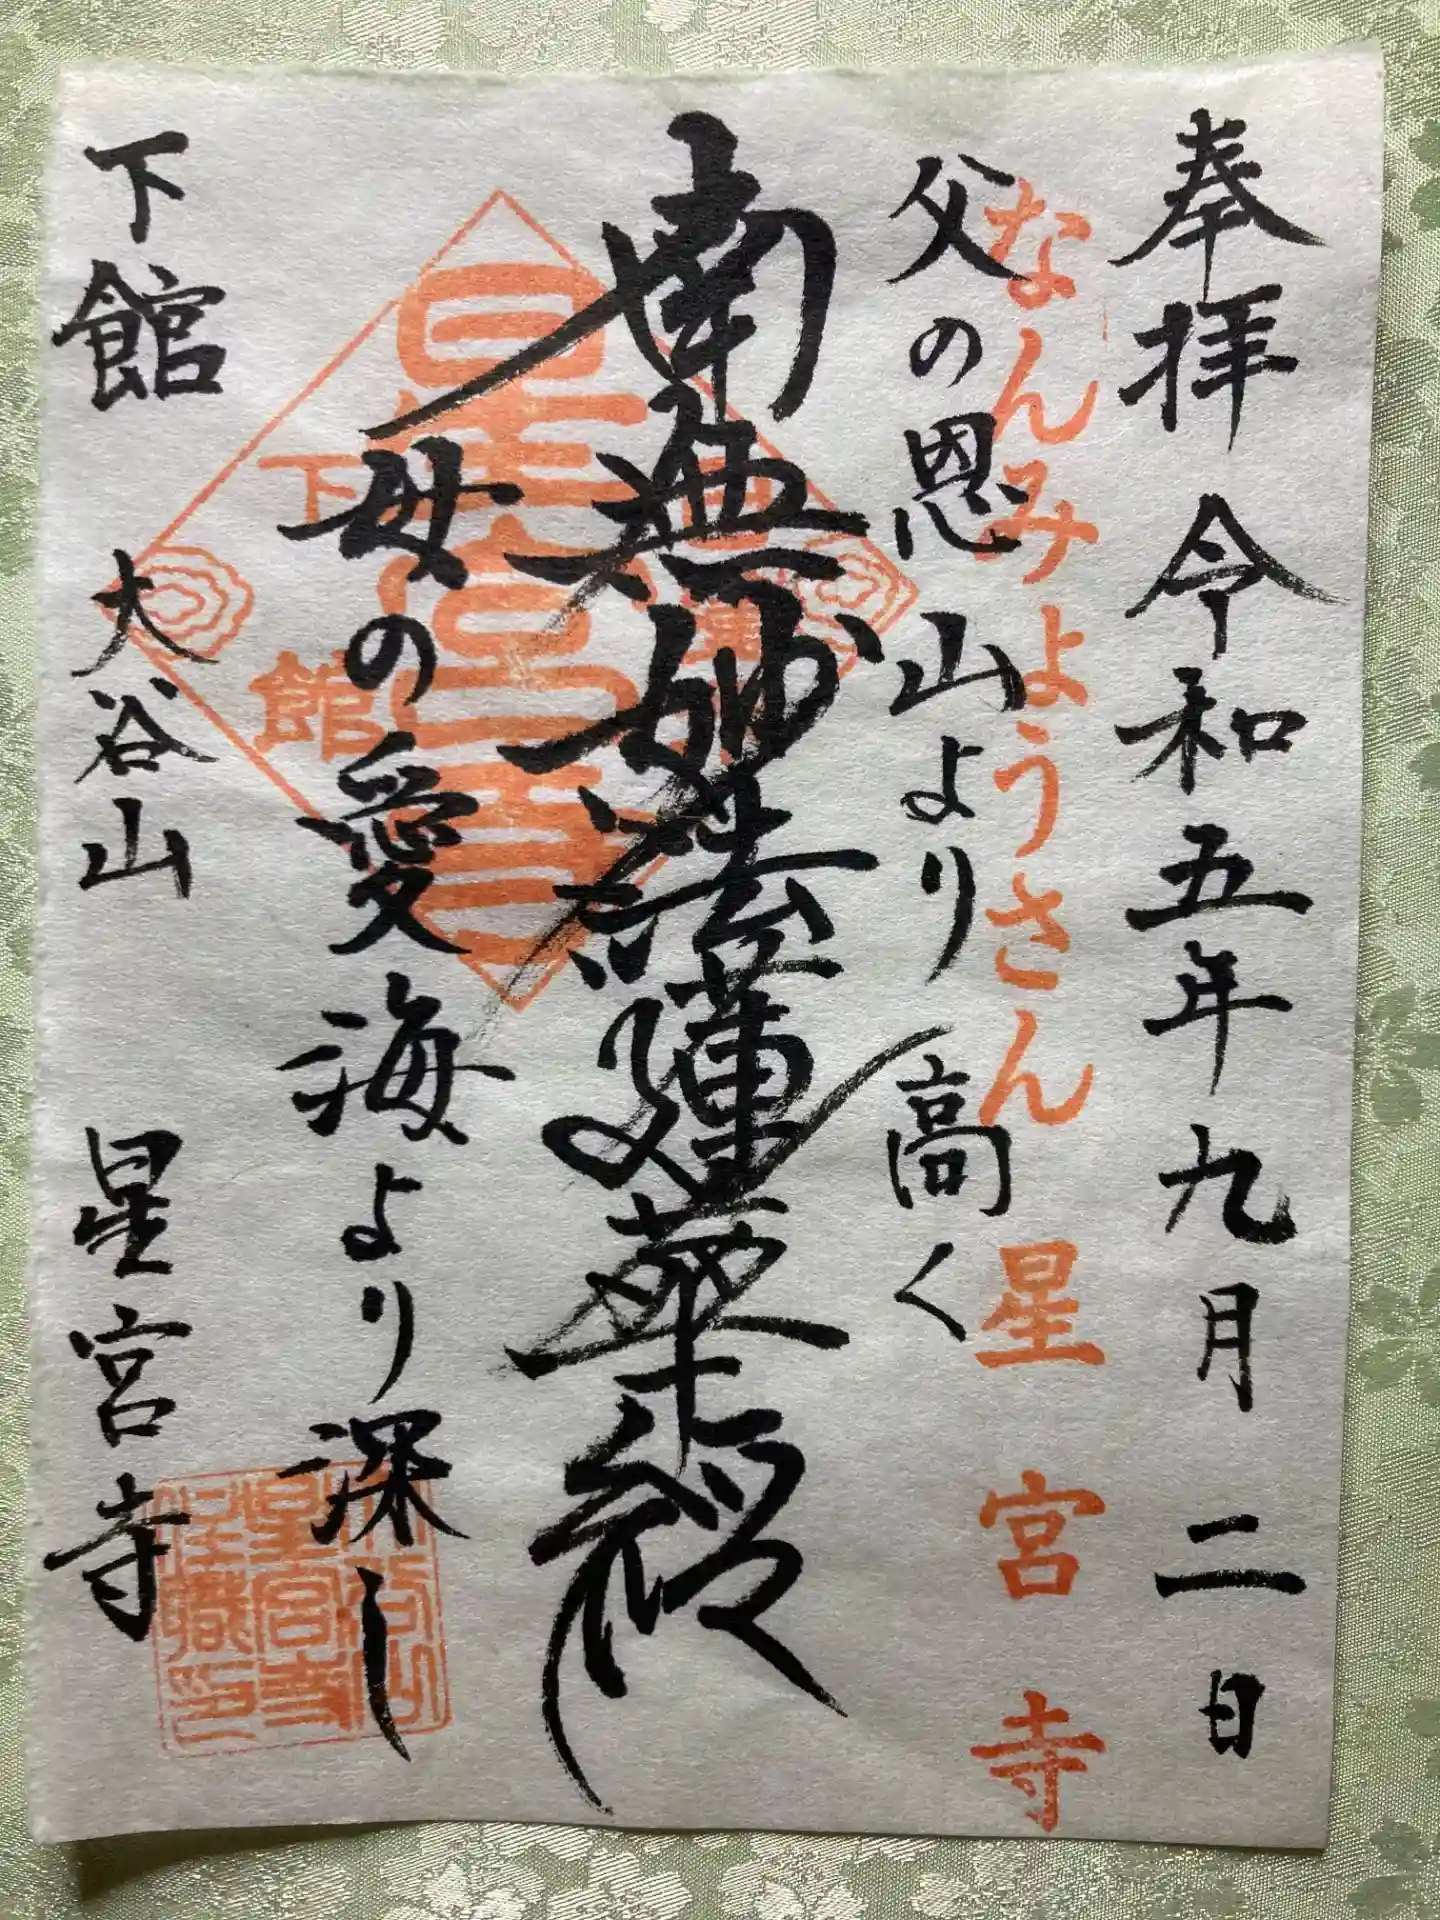 奉拝 令和五年九月二日
なんみようさん 星宮寺
父の恩 山より 高く
南無妙法蓮華経
母の愛 海より深し
星宮寺
下館
下館 大谷山 星宮寺
星宮寺
住職印